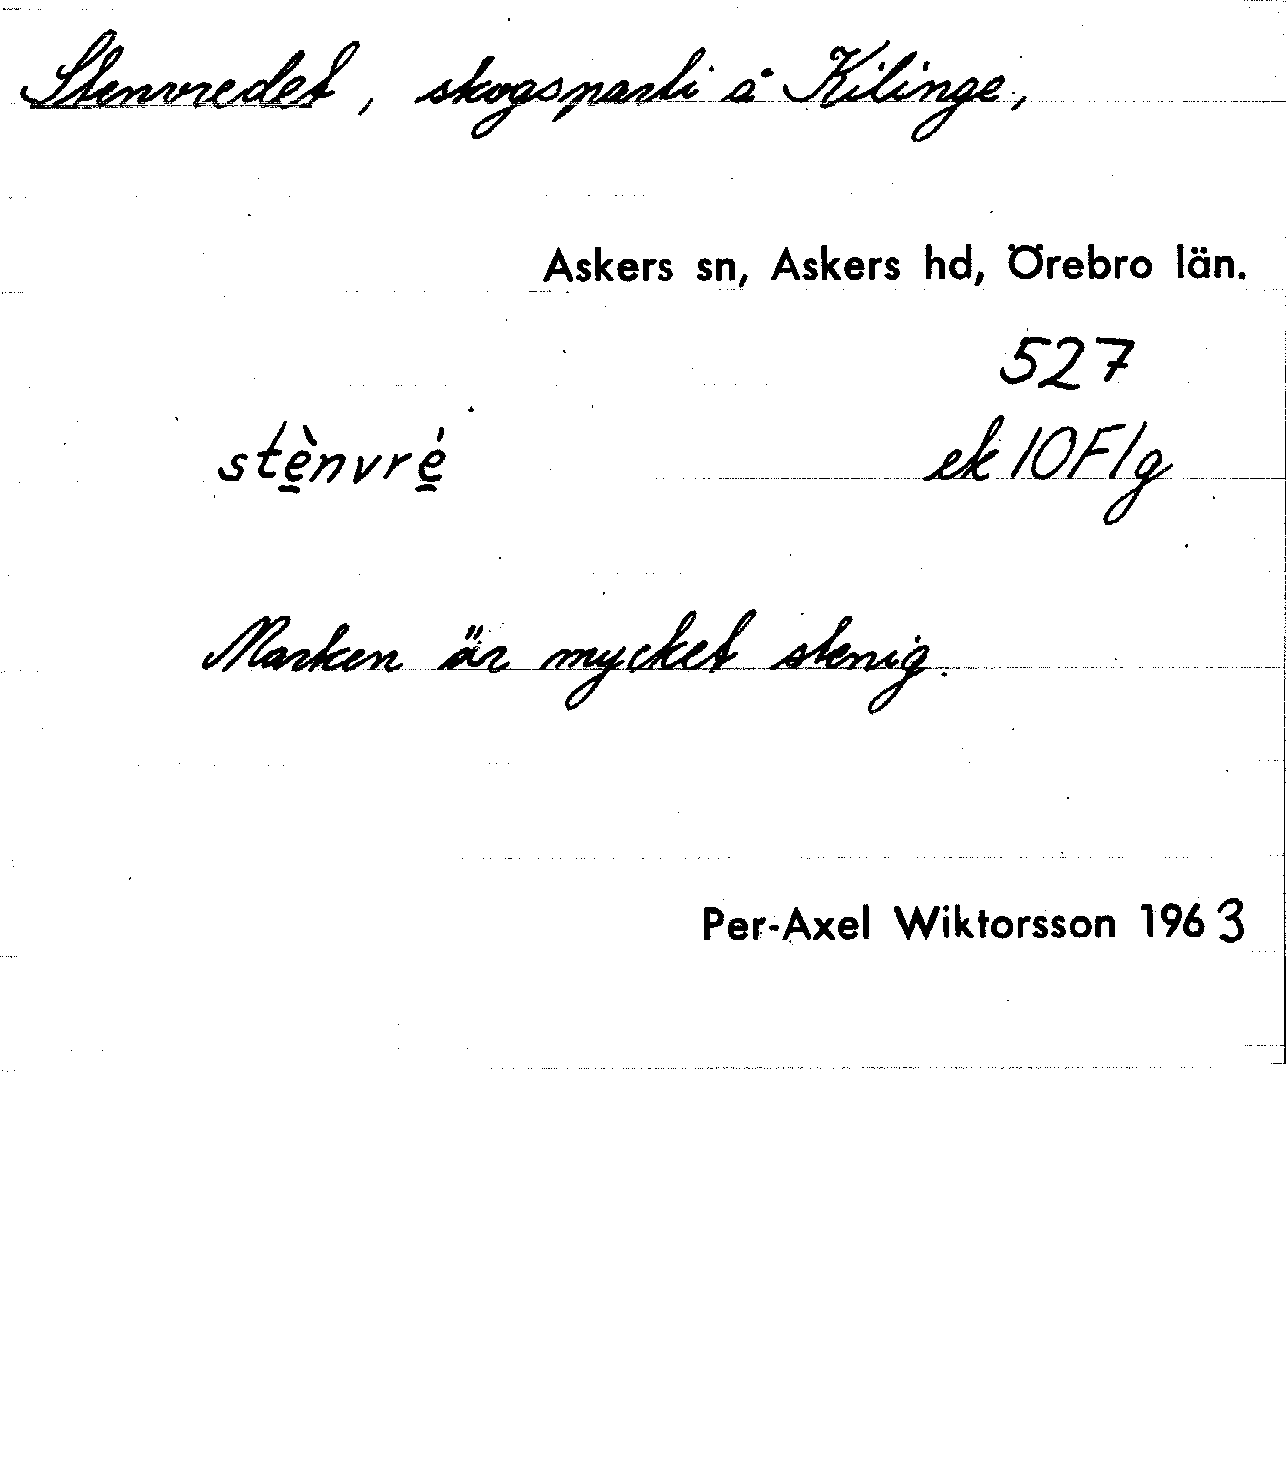 Stenvredet, skogsparti å Kilinge,
Askers sn, Askers hd, Örebro län.
527
stè̱nvré̱ ek 10F1g
Marken är mycket stenig.
Per-Axel Wiktorsson 1963